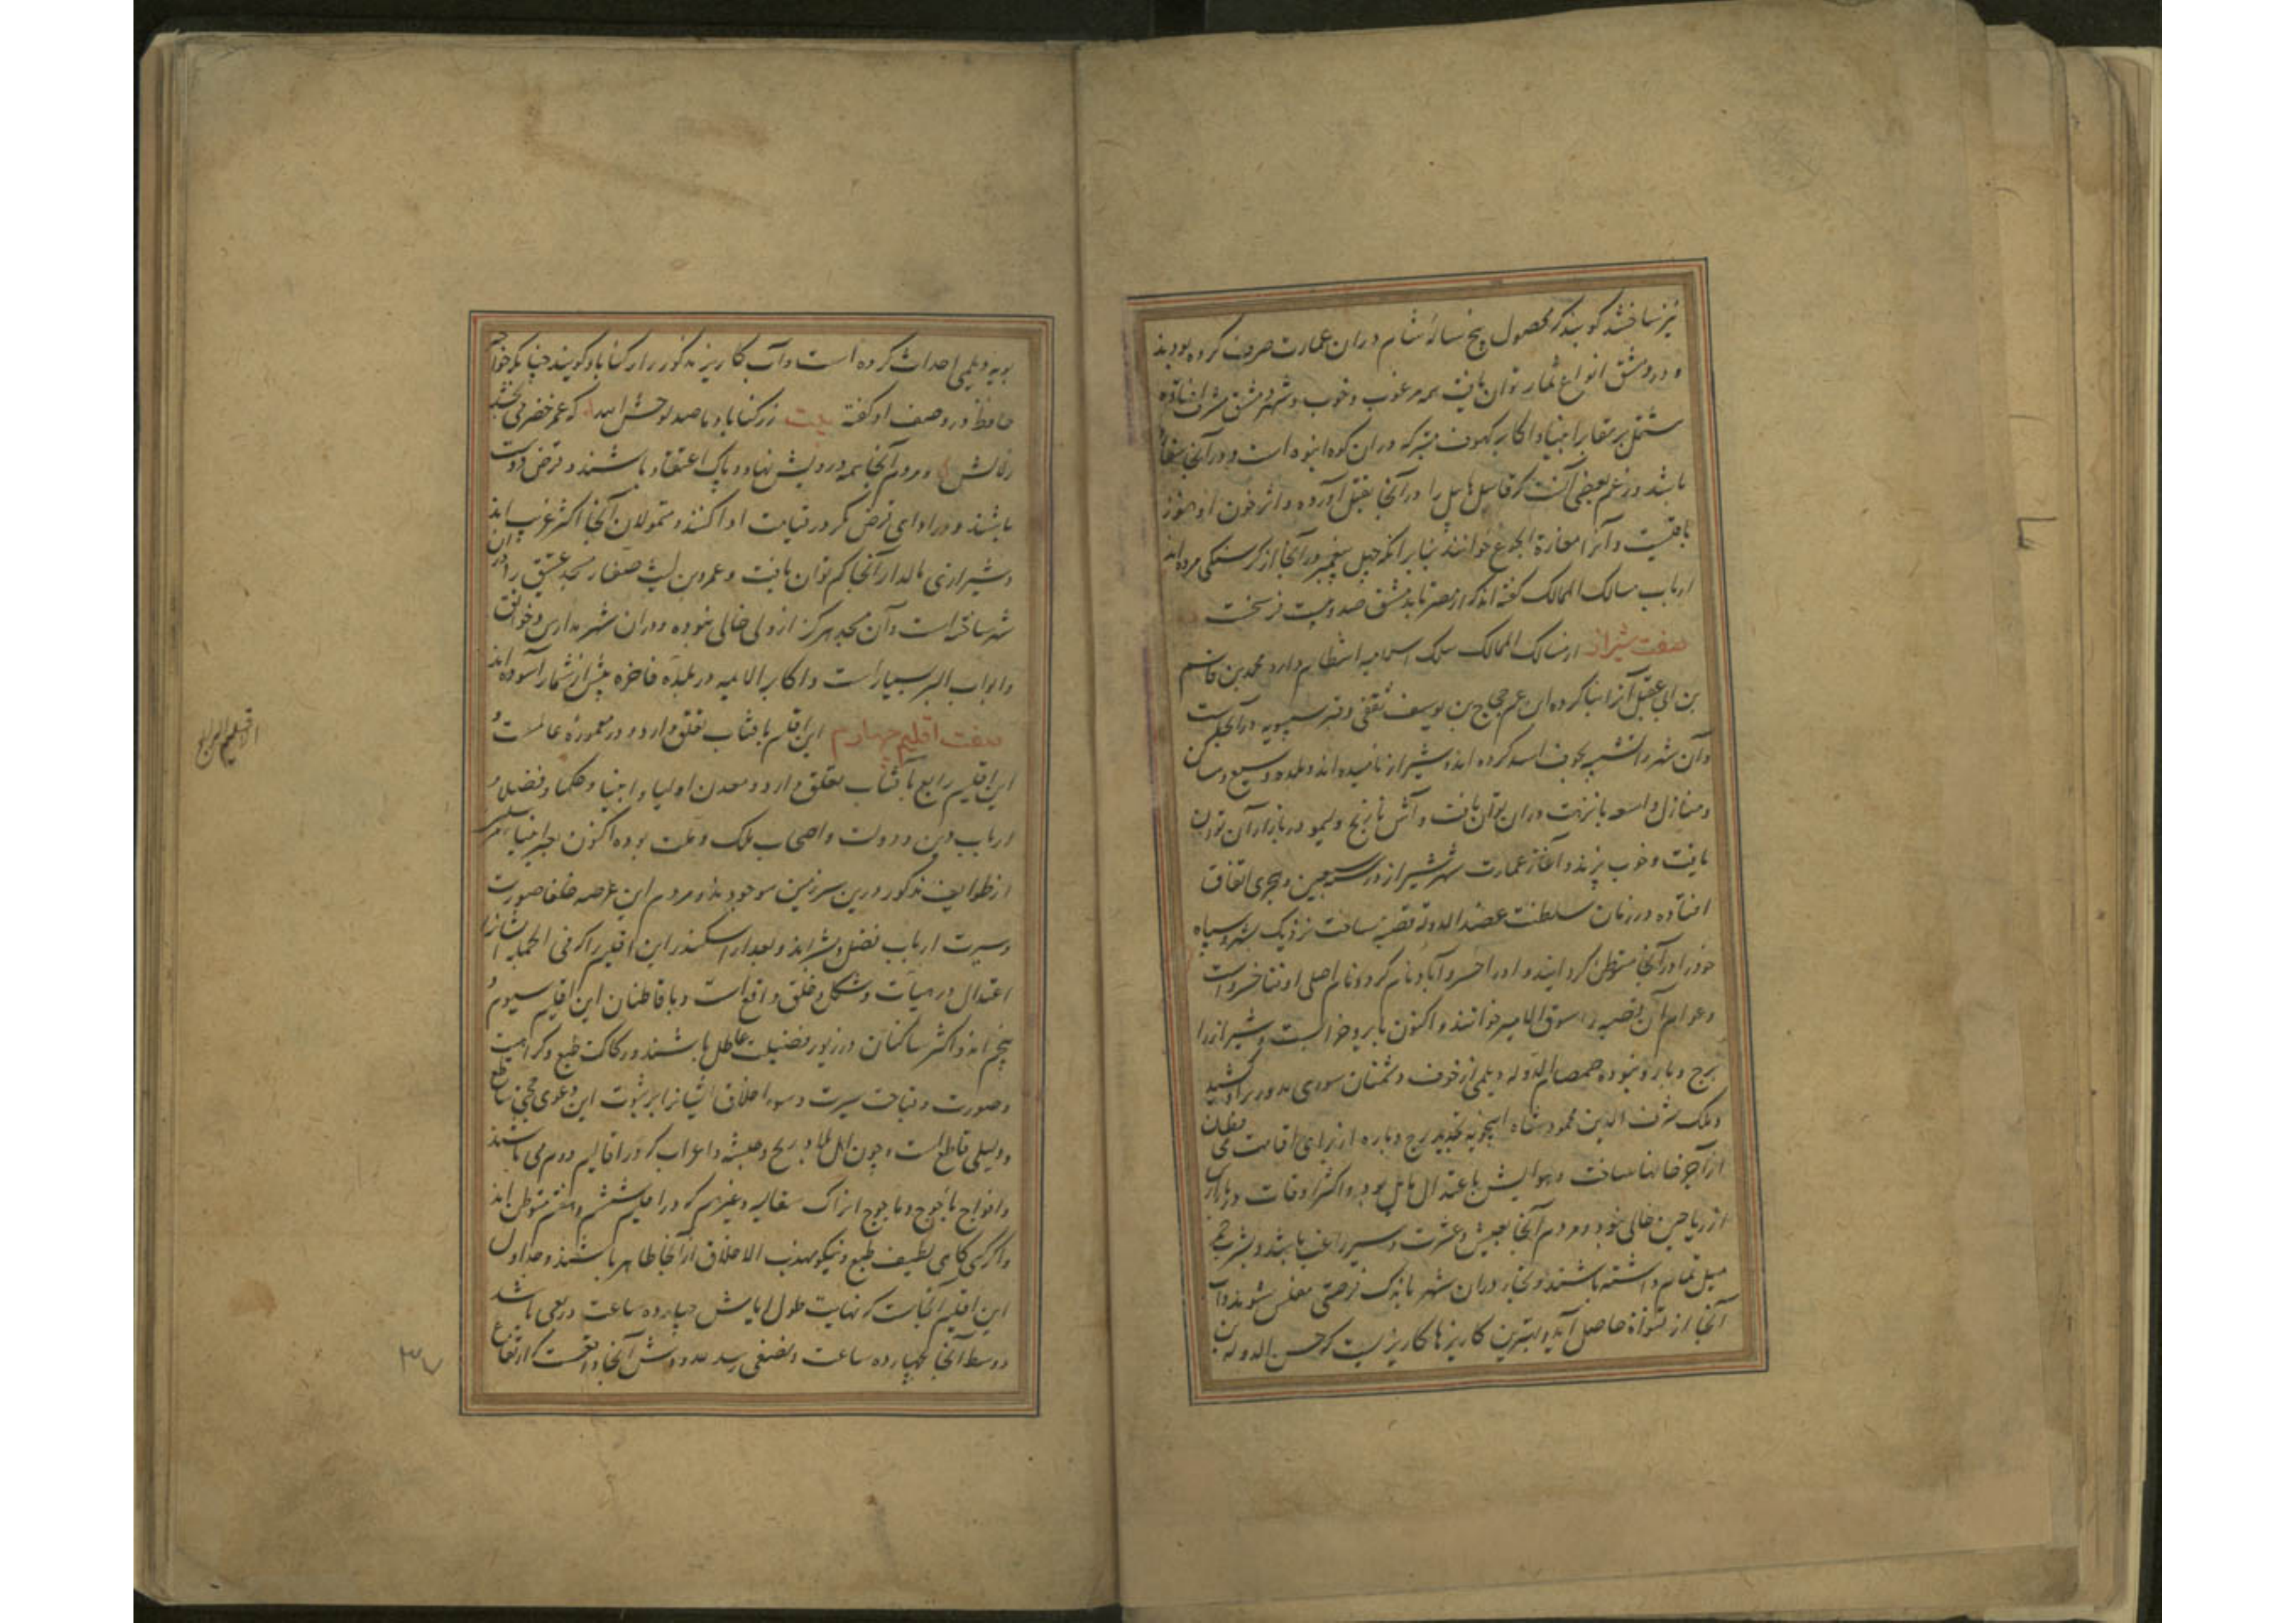 نیز ساختند کویند که محصول پنج ساله شام دران عمارت صرف کرده بودند
و در دمشق انواع ثمار توان یافت همه مرغوب و خوب و شهر دمشق مشرف افتاده
مشتمل بر مقابر انبیا و اکابر کهوف متبرکه دران کوه انبوه است و در آنجا مغاره
باشد و زعم بعضی آنست که قابیل هابیل را در آنجا بقتل آورده و اثر خون او هنوز
باقیست و آنرا مغارة الجوع خوانند بنابر آنکه چهل پیغمبر در آنجا از کرسنکی مرده اند
ارباب مسالک الممالک کفته اند که از مصر تا بدمشق صد و بیست فرسخست
صفت شیراز از مسالک الممالک سلک اسلامیه انتظام دارد محمد بن قاسم
بن ابی عقیل آنرا بنا کرده ابن عم حجاج بن یوسف ثقفی و قبر سیبویه در آنجاست
و آن شهر را تشبیه بجوف اسد کرده اند و شیراز نامیده اند و بلده وسیع و مساکن
و منازل واسعه با نزهت دران توان یافت و آش نارنج و لیمو در بازار آن توان
یافت و خوب پزند و آغاز عمارت شهر شیراز در سبعین هجری اتفاق
افتاده در زمان سلطنت عضد الدوله قصبه ساخت نزدیک بشهر و سپاه
خود را در آنجا متوطن کردانید و او را خسرو آباد نام کرد و نام اصلی او فنا خسرو است
و عوام آن قصبه را سوق الامیر خوانند و اکنون بایر و خرابست و شیراز را
برج و باره نبوده صمصام الدوله دیلمی از خوف دشمنان سوری بدور بر او کشید
و ملک شرف الدین محمود شاه اینجویه تجدید برج و باره از برای اقامت
از آجر خانها ساخت و هوایش باعتدال مایل بود و اکثر اوقات در بازار
از ریاحین خالی نبود و مردم آنجا بعیش و عشرت و سیر راغب باشند و بشرب خمر
میل تمام داشته باشند و تجار دران شهر باندک فرصتی مفلس شوند و آب
آنجا از قنوات حاصل آید و بهترین کاریزها کاریزیست که حسن الدوله بن
بویه دیلمی احداث کرده است و آب کاریز مذکور را رکناباد کویند چنانکه خواجه
حافظ در وصف او کفته بیت ز رکناباد ما صد لوحش الله که عمر خضر می بخشد
زلالش و مردم آنجا همه درویش نهاد و پاک اعتقاد باشند و قرض دوست
باشند و در ادای قرض مکر در قیامت ادا کنند و متمولان آنجا اکثر غریب اند
و شیرازی مالدار آنجا کم توان یافت و عمرو بن لیث صفار مسجد عتیق را در ان
شهر ساخته است و آن مسجد هرکز از ولی خالی نبوده و دران شهر مدارس و خوانق
و ابواب البر بسیار است و اکابر الامیه در بلده فاخره بیش از شمار آسوده اند
صفت اقلیم چهارم این اقلیم بافتاب تعلق دارد و در معموره عالمست و
این اقلیم رابع بآفتاب تعلق دارد و معدن اولیا و انبیا و حکما و فضلا و
ارباب دین و دولت و اصحاب ملک و ملت بوده اکنون بغیر انبیا
از طوایف مذکور درین سرزمین موجودند و مردم این عرصه خلفا صورت
و سیرت ارباب فضل و هنراند و بعد از اسکندر این اقلیم را که فی الجمله ایشانرا
اعتدال در هیأت و شکل و خلق واقع است و باقاطنان این اقلیم سیوم و
پنجم اند و اکثر ساکنان در زیور فضیلت عاطل باشند و رکاکت طبع و کراهیت
و صورت و قباحت سیرت و سوء اخلاق ایشانرا بر ثبوت این دعوی حجتی ساطع
و دلیلی قاطع است و چون اهل بلاد ریح و حبشه و اعراب که در اقالیم دوم می باشند
و افواج یأجوج و ماجوج اتراک سقالبه و غیرهم که در اقلیم ششم و هفتم متوطن اند
و اکر کسی کاهی لطیف طبع و نیکو مهذب الاخلاق از آنجا ظاهر باشند و حد اول
این اقلیم آنجاست که نهایت طول ایامش چهارده ساعت و ربعی باشد
و وسط آنجا بچهارده ساعت و نصفی رسد و عرضش آنجا واقعست که ارتفاع
الاقلیم الرابع
۳۷